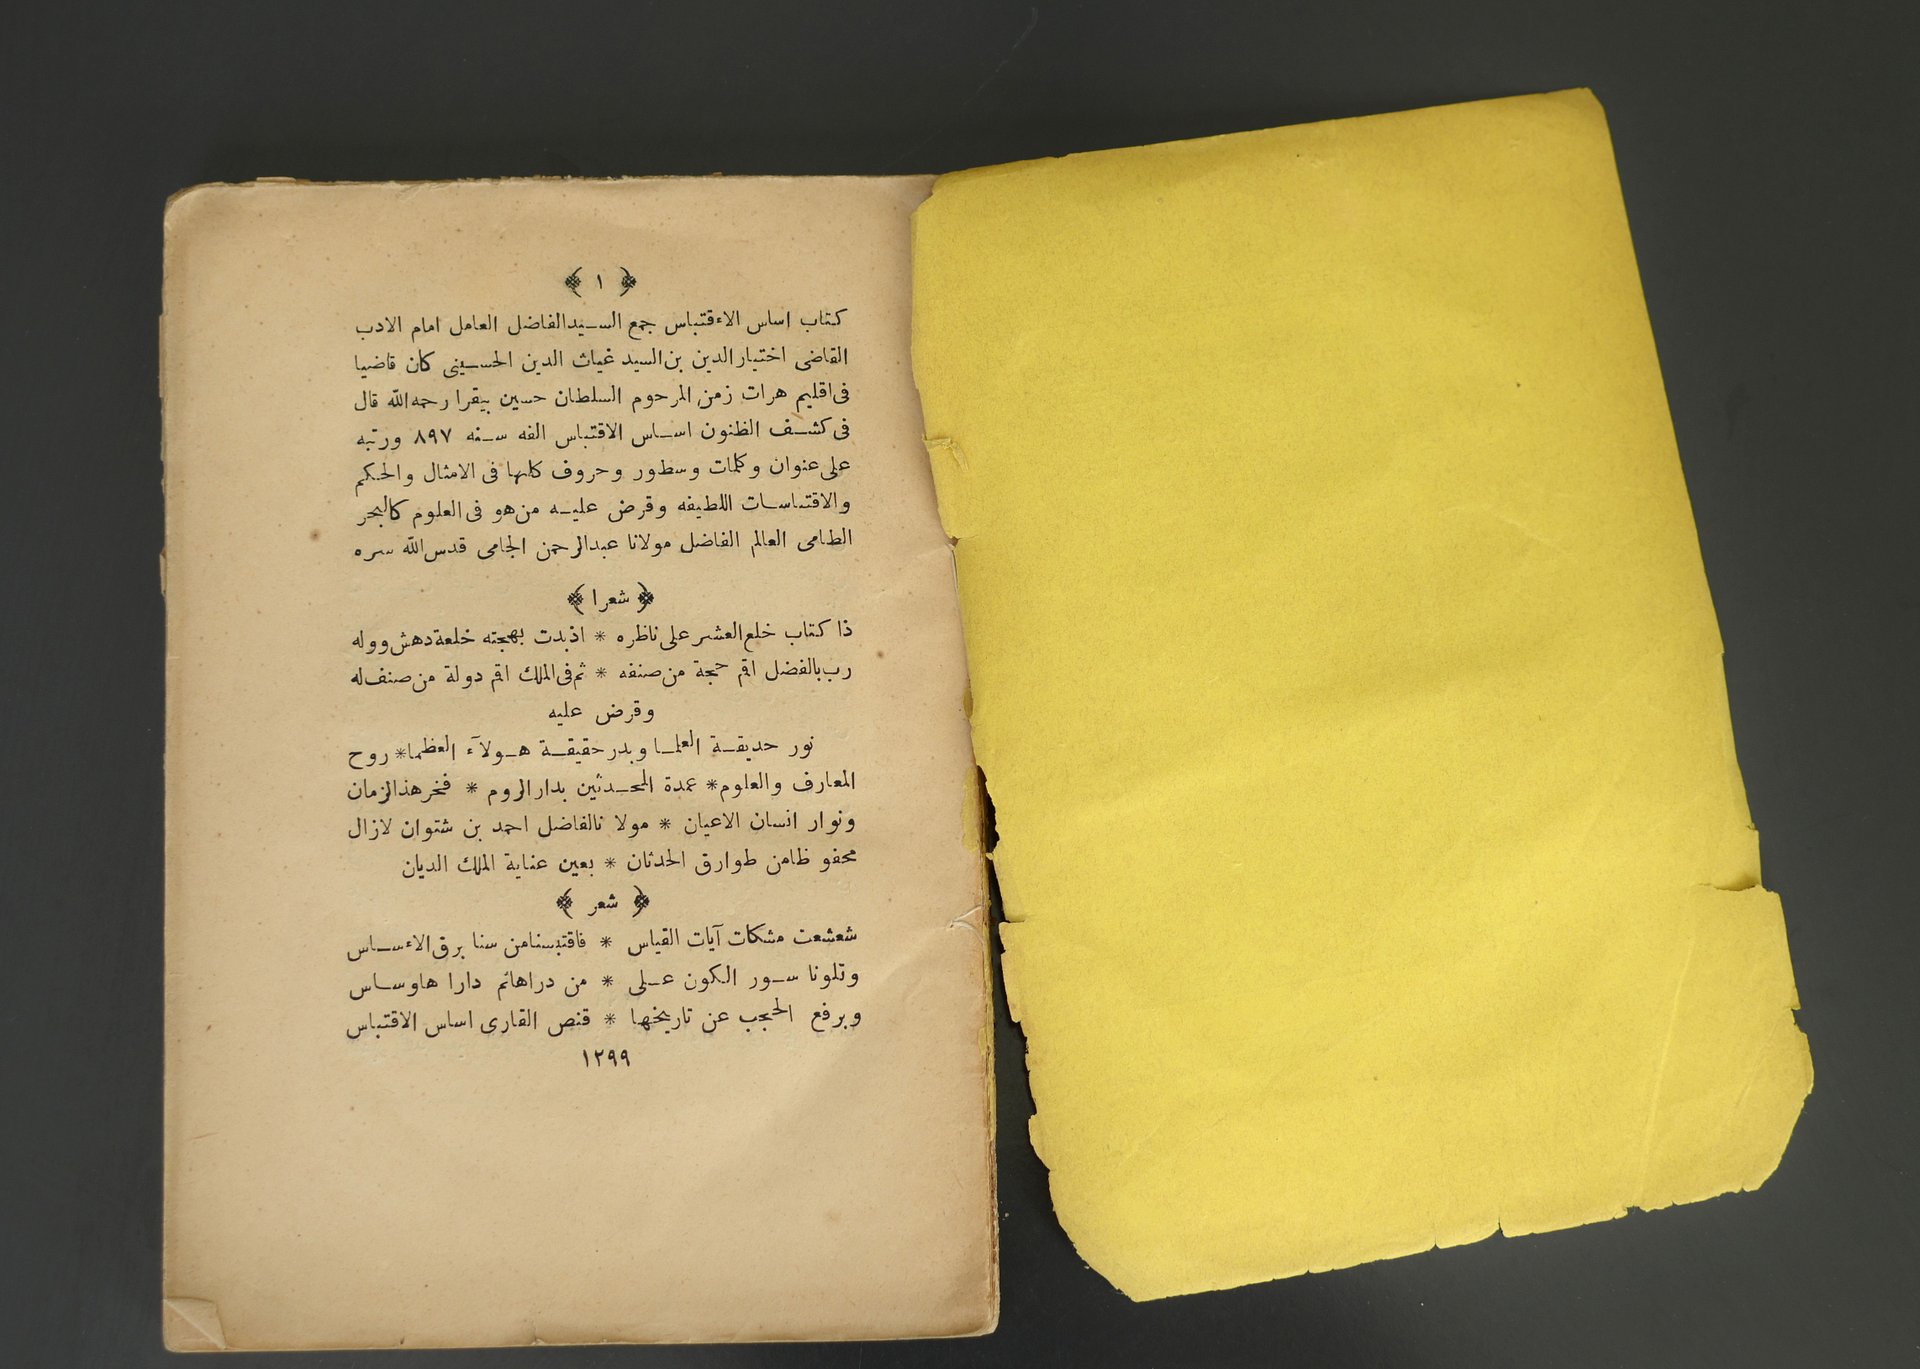 ﴿ ١ ﴾
كتاب اساس الاءقتباس جمع السيدالفاضل العامل امام الادب
القاضى اختيارالدين بن‌السيد غياث الدين الحسينى كان قاضيا
فى‌اقليم هرات زمن المرحوم السلطان حسين بيقرا رحمه‌الله قال
فى‌كشف الظنون اساس الاقتباس الفه سنه ٨٩٧ ورتبه
على‌عنوان وكلمات وسطور وحروف كلها فى الامثال والحكم
والاقتباسات اللطيفه وقرض عليه من‌هو فى‌العلوم كالبحر
الطامى العالم الفاضل مولانا عبدالرحمن الجامى قدس‌الله سره
﴿ شعرا ﴾
ذا كتاب خلع‌العشر على‌ناظره * اذبدت بهجته خلعة‌دهش‌ووله
رب‌بالفضل اقم حجة من‌صنفه * ثم‌فى‌الملك اقم دولة من‌صنف‌له
وقرض عليه
نور حديقة العلما وبدرحقيقة هولآء العظما* روح
المعارف والعلوم* عمدة المحدثين بدارالروم * فخرهذالزمان
ونوار انسان الاعيان * مولا نالفاضل احمد بن شتوان لازال
محفو ظامن طوارق الحدثان * بعين عناية الملك الديان
﴿ شعر ﴾
شعشعت مشكات آيات القياس * فاقتبسنامن سنا برق‌الاءساس
وتلونا سور الكون على * من دراهائم دارا هاوساس
وبرفع الحجب عن تاريخها * قنص القارى اساس الاقتباس
١٢٩٩